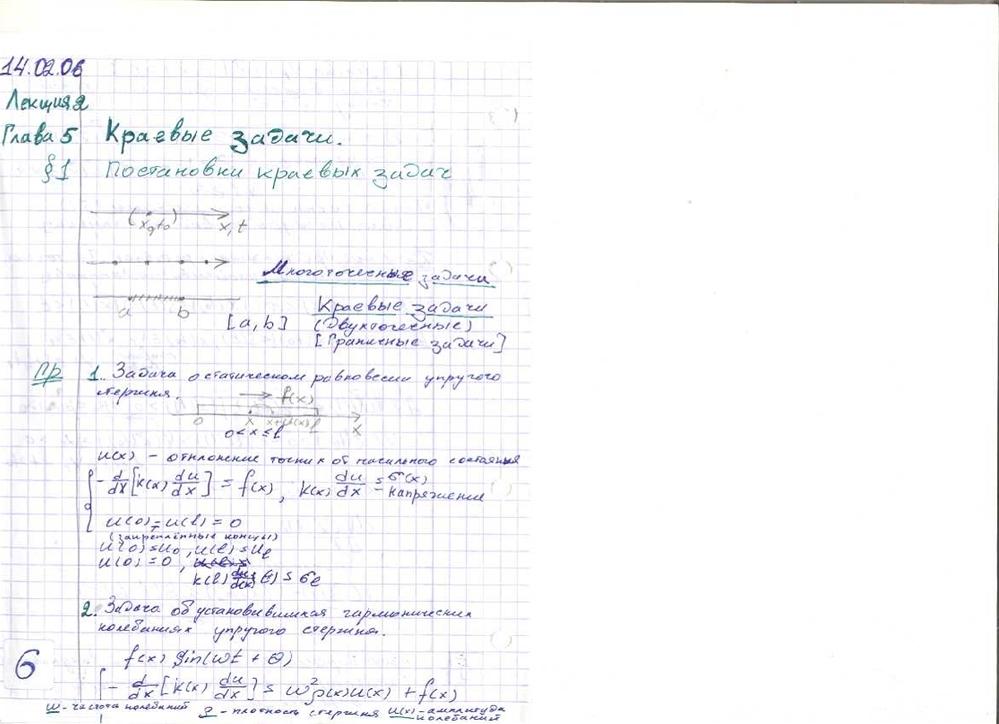 14.02.06
Лекция 2
Глава 5 Краевые задачи.
§1 Постановки краевых задач
x₀, t₀ x, t
Многоточечные задачи
a b Краевые задачи
[a, b] (Двухточечные)
[Граничные задачи]
Пр 1. Задача о статическом равновесии упругого
стержня. f(x)
0 x x+u(x) l x
0 < x ≤ l
u(x) – отклонение точки x от начального состояния
- d/dx [k(x) du/dx] = f(x), k(x) du/dx = σ(x) – напряжение
u(0) = u(l) = 0
(закреплённые концы)
u(0) = u₀, u(l) = u_l
u(0) = 0,
k(l) du/dx (l) = σ_l
2. Задача об установившихся гармонических
колебаниях упругого стержня.
f(x) sin(ωt + Θ)
- d/dx [k(x) du/dx] = ω²ρ(x)u(x) + f(x)
ω - частота колебаний ρ - плотность стержня u(x) - амплитуда колебаний
6